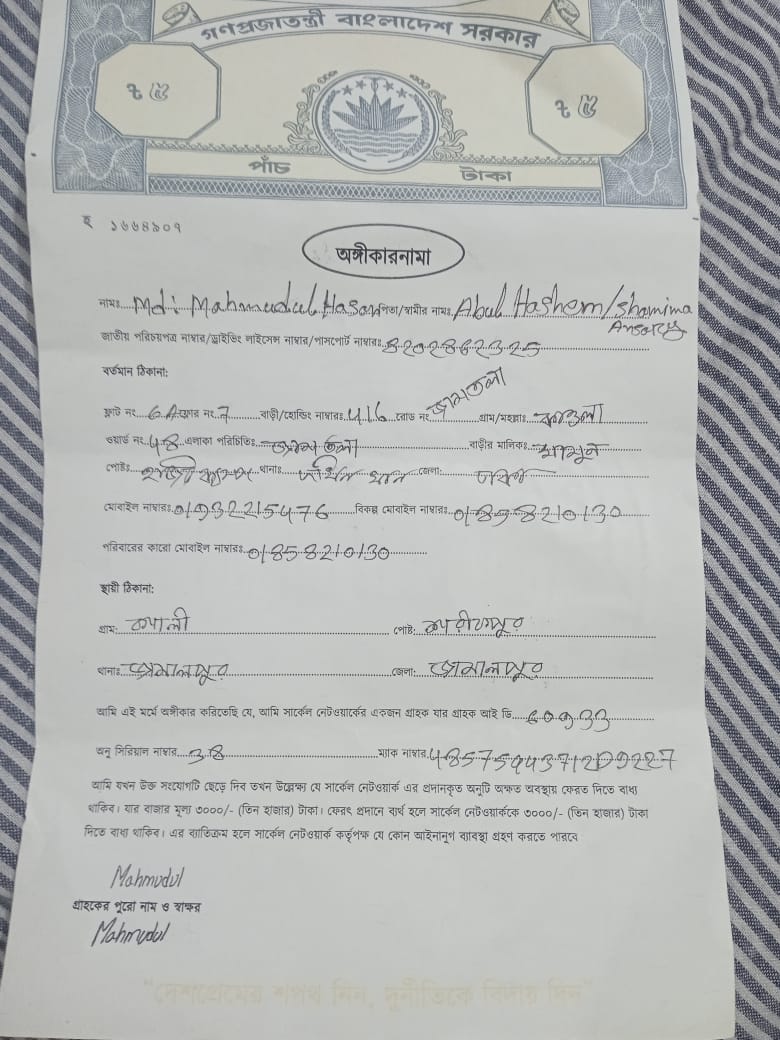 গণপ্রজাতন্ত্রী বাংলাদেশ সরকার
৳ ৫ ৳ ৫
পাঁচ টাকা
হ ১৬৬৪৯০৭
অঙ্গীকারনামা
নামঃ Md: Mahmudul Hasan পিতা/স্বামীর নামঃ Abul Hashem/Shamima Ansary
জাতীয় পরিচয়পত্র নাম্বার/ড্রাইভিং লাইসেন্স নাম্বার/পাসপোর্ট নাম্বারঃ 8202862325
বর্তমান ঠিকানা:
ফ্লাট নং 6A ফ্লোর নং 7 বাড়ী/হোল্ডিং নাম্বারঃ 416 রোড নং জামতলা গ্রাম/মহল্লাঃ কাওলা
ওয়ার্ড নং 48 এলাকা পরিচিতিঃ জামতলা বাড়ীর মালিকঃ মামুন
পোষ্টঃ থানাঃ দক্ষিণ খান জেলা:
মোবাইল নাম্বারঃ 01932215476 বিকল্প মোবাইল নাম্বারঃ 01858210130
পরিবারের কারো মোবাইল নাম্বারঃ 01858210130
স্থায়ী ঠিকানা:
গ্রাম: পোষ্ট:
থানাঃ জামালপুর জেলা: জামালপুর
আমি এই মর্মে অঙ্গীকার করিতেছি যে, আমি সার্কেল নেটওয়ার্কের একজন গ্রাহক যার গ্রাহক আই ডি 60933
অনু সিরিয়াল নাম্বার 38 ম্যাক নাম্বার 485759443712D9227
আমি যখন উক্ত সংযোগটি ছেড়ে দিব তখন উল্লেক্ষ্য যে সার্কেল নেটওয়ার্ক এর প্রদানকৃত অনুটি অক্ষত অবস্থায় ফেরত দিতে বাধ্য
থাকিব। যার বাজার মূল্য ৩০০০/- (তিন হাজার) টাকা। ফেরৎ প্রদানে ব্যর্থ হলে সার্কেল নেটওয়ার্ককে ৩০০০/- (তিন হাজার) টাকা
দিতে বাধ্য থাকিব। এর ব্যতিক্রম হলে সার্কেল নেটওয়ার্ক কর্তৃপক্ষ যে কোন আইনানুগ ব্যবস্থা গ্রহণ করতে পারবে
Mahmudul
গ্রাহকের পুরো নাম ও স্বাক্ষর
Mahmudul
"দেশপ্রেমের শপথ নিন, দুর্নীতিকে বিদায় দিন"